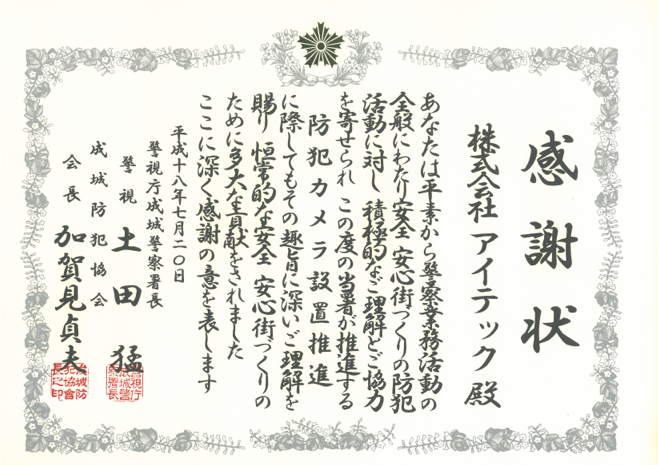 感謝状
株式会社 アイテック 殿
あなたは平素から警察業務活動の
全般にわたり安全 安心街づくりの防犯
活動に対し 積極的なご理解とご協力
を寄せられ この度の当署が推進する
防犯カメラ設置推進
に際してもその趣旨に深いご理解を
賜り 恒常的な安全 安心街づくりの
ために多大な貢献をされました
ここに深く感謝の意を表します
平成十八年七月二〇日
警視庁成城警察署長
警視 土田 猛
成城防犯協会
会長 加賀見貞夫
警視庁
成城警
察署長
成城防
犯協會
長之印